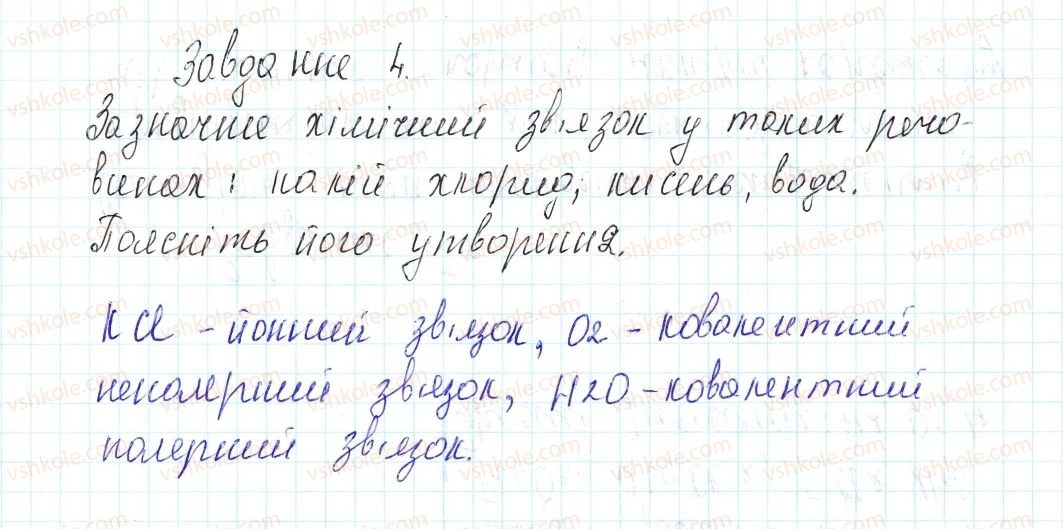 Завдання 4.
Зазначте хімічний зв'язок у таких речо-
винах: калій хлорид, кисень, вода.
Поясніть його утворення.
KCl - йонний зв'язок, O2 - ковалентний
неполярний зв'язок, H2O - ковалентний
полярний зв'язок.